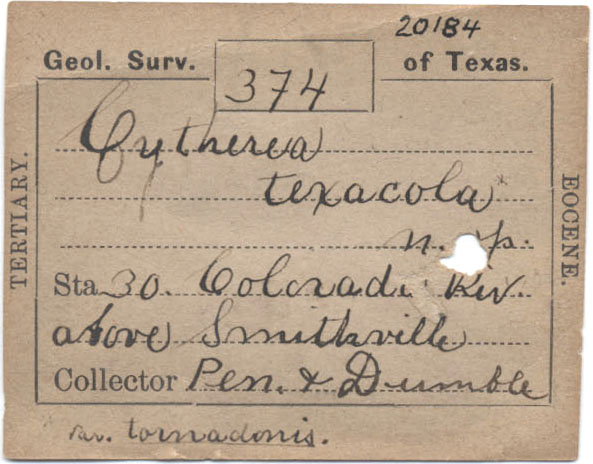 20184
Geol. Surv. 374 of Texas.
TERTIARY.
EOCENE.
Cytherea
texacola
n. sp.
Sta 30. Colorado Riv.
above Smithville
Collector Pen. & Dumble
tornadonis.